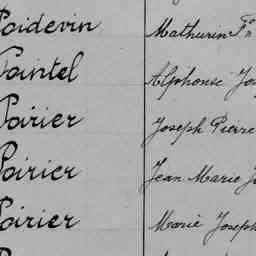 Poidevin Mathurin Fois
Pointel Alphonse
Poirier Joseph Pierre
Poirier Jean Marie
Poirier Marie Joseph